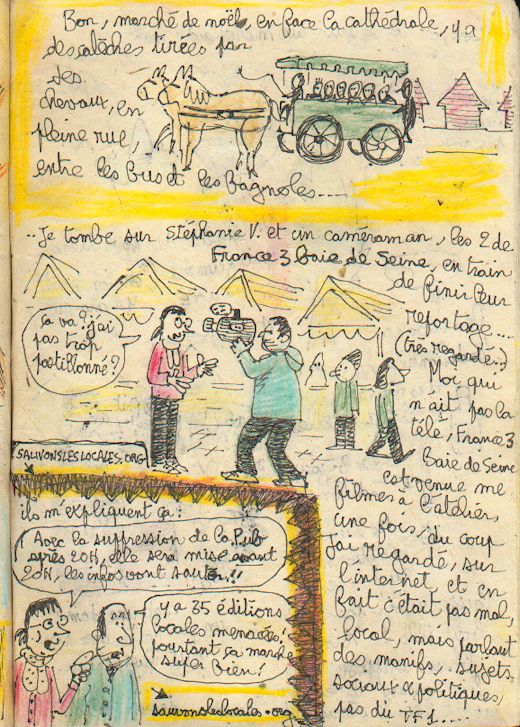 Bon, marché de noël, en face la cathédrale, y a
des calèches tirées par
des
chevaux, en
pleine rue,
entre les bus et les bagnoles....
..Je tombe sur Stéphanie V. et un caméraman, les 2 de
France 3 baie de Seine, en train
de finir leur
reportage....
(très regardé..)
Moi qui
n'ait pas la
télé, France 3
Baie de Seine
est venue me
filmer à l'atelier
une fois, du coup
J'ai regardé, sur
l'internet et en
fait c'était pas mal,
local, mais parlant
des manifs, sujets
sociaux & politiques,
pas du TF1....
ça va? j'ai
pas trop
postillonné?
SAUVONSLESLOCALES.ORG
ils m'expliquent ça:
Avec la suppression de la Pub
après 20H, elle sera mise avant
20H, les infos vont sauter!!
y a 35 éditions
locales menacées!
pourtant ça marche
super bien!
sauvonsleslocales.org